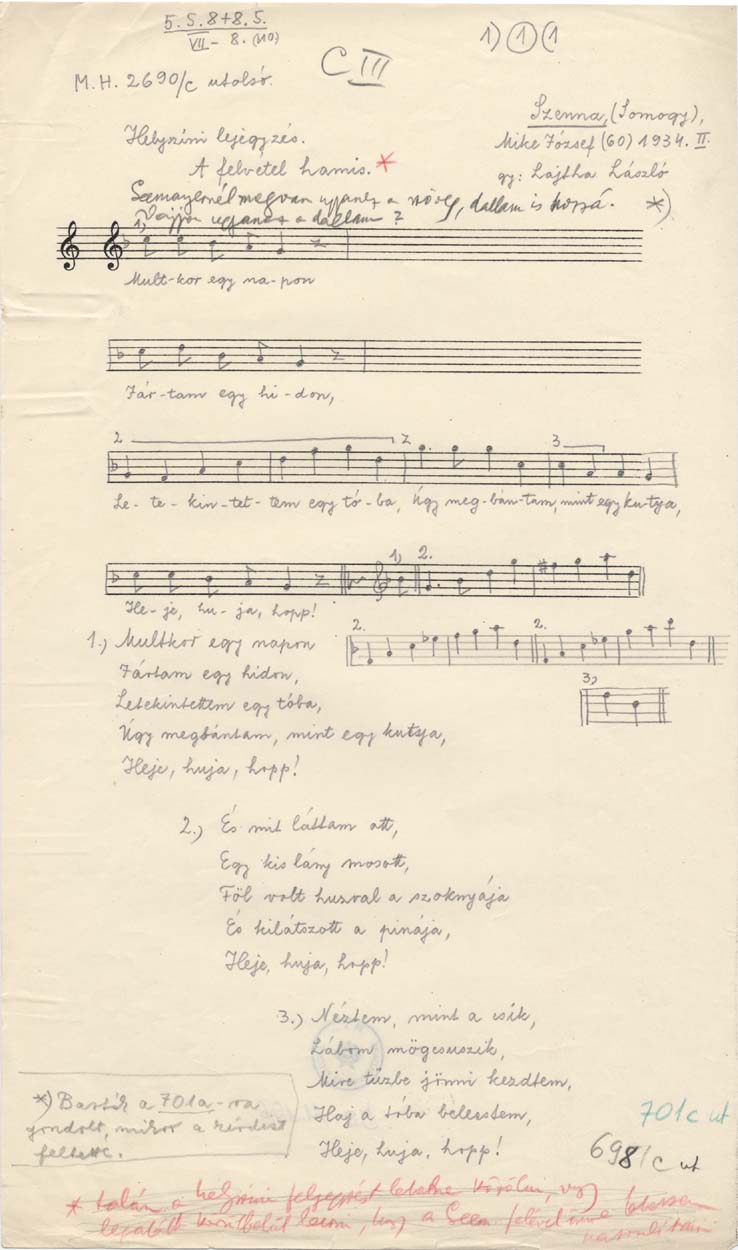 5. 5. 8+8. 5.
VII - 8. (10)
1) ① (1
C III
M. H. 2690/c utolsó.
Szenna, (Somogy),
Helyszíni lejegyzés.
Mike József (60) 1934. II.
A felvétel hamis. *
gy: Lajtha László
Seemayernél megvan ugyanez a szöveg, dallam is hozzá. *)
Vajjon ugyanez a dallam?
1,
Mult-kor egy na-pon
Jár-tam egy hi-don,
2. 2. 3.
Le-te-kin-tet-tem egy tó-ba, Úgy meg-bán-tam, mint egy ku-tya,
1, 2.
He-je, hu-ja, hopp!
2. 2.
3,
1.) Multkor egy napon
Jártam egy hidon,
Letekintettem egy tóba,
Úgy megbántam, mint egy kutya,
Heje, huja, hopp!
2.) És mit láttam ott,
Egy kis lány mosott,
Föl volt huzval a szoknyája
És kilátszott a pinája,
Heje, huja, hopp!
3.) Néztem, mint a csík,
Lábom mögcsuszik,
Mire tűzbe jönni kezdtem,
Haj a tóba beleestem,
Heje, huja, hopp!
*) Bartók a 701a-ra
gondolt, mikor a kérdést
feltette.
701c ut
698/c ut
* talán a helyszíni feljegyzést lehetne közölni, vagy
legalább a Seem